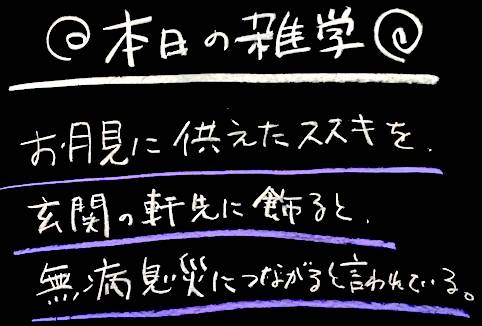 @本日の雑学@
お月見に供えたススキを、
玄関の軒先に飾ると、
無病息災につながると言われている。